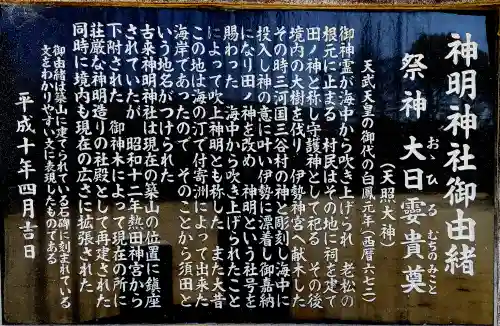 神明神社御由緒
祭神 大日霊貴奠
おゝひるむちのみこと
(天照大神)
天武天皇の御代の白鳳元年(西暦六七二)
御神霊が海中から吹き上げられ 老松の
根元に止まる 村民はその地に祠を建て
田ノ神と称し守護神として祀る その後
境内の大樹を伐り 伊勢神宮へ献木した
その時三河国三谷村の神と彫刻し海中に
投入し神の意に叶い伊勢に漂着し御嘉納
になり田ノ神を改め 神明という社号を
賜わった 海中から吹き上げられたこと
によって吹上神明とも称した また大昔
この地は海の汀で付寄洲によって出来た
海岸であったので そのことから須田と
いう地名がつけられた
古来神明神社は現在の築山の位置に鎮座
されていたが 昭和十二年熱田神宮から
下附された 御神木によって現在の所に
荘厳な神明造りの社殿として再建された
同時に境内も現在の広さに拡張された
御由緒は築山に建てられている石碑に刻まれている
文をわかりやすい文に表現したものである
平成十年四月吉日